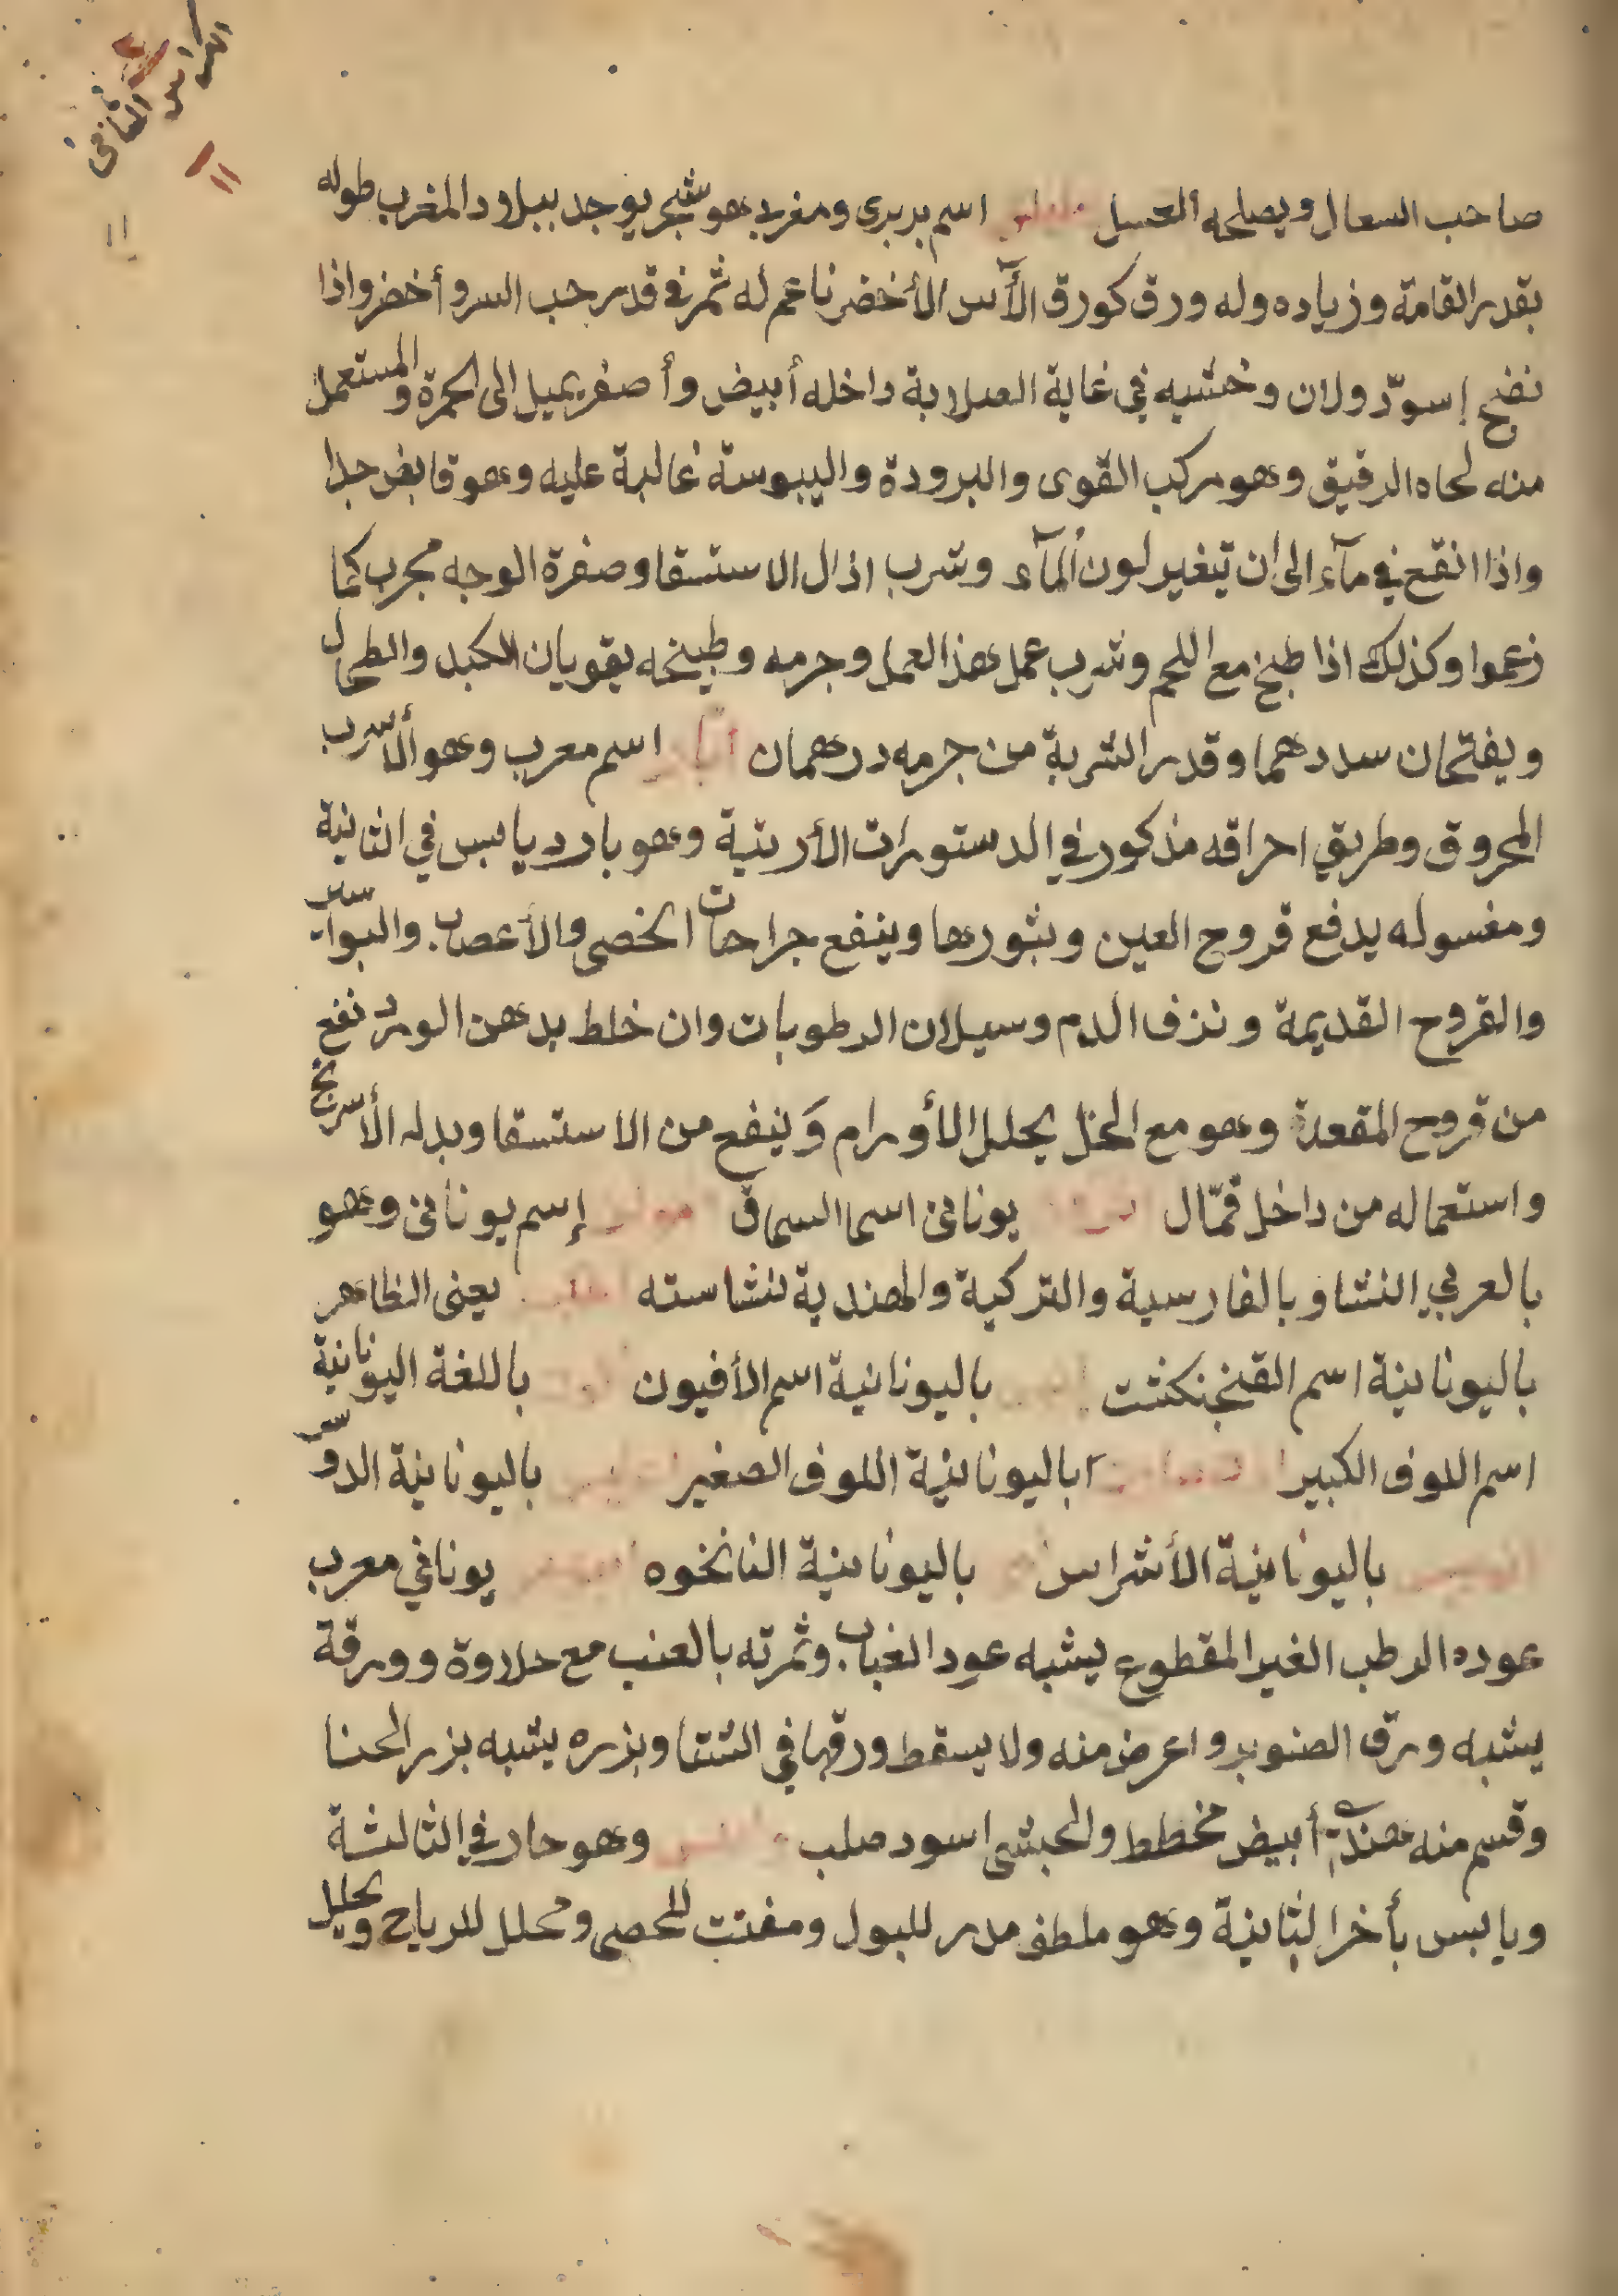 الكراس
الثاني
١١
صاحب السعال ويصلحه العسل اسم بربرى ومغربي هو شجر يوجد ببلاد المغرب طوله
بقدر القامة وزياده وله ورق كورق الآس الأخضر ناعم له ثمر في قدر حب السرو أخضر واذا
نضج إسودّ ولان وخشبه في غاية الصلابة داخله أبيض وأصفر يميل الى الحمرة والمستعمل
منه لحاه الرقيق وهو مركب القوى والبرودة واليبوسة غالبة عليه وهو قابض جدا
واذا انقع في مآء الى ان يتغير لون المآء وشرب اذال الاستسقا وصفرة الوجه مجرب كما
زعموا وكذلك اذا طبخ مع اللحم وشرب عمل هذا العمل وجرمه وطبيخه يقويان الكبد والطحال
ويفتحان سددهما وقدر الشربة من جرمه درهمان اسم معرب وهو الأسرب
المحروق وطريق احراقه مذكور في الدستورات الأربية وهو بارد يابس في الثانية
ومغسوله يدفع قروح العين وبثورها وينفع جراحات الخصى والأعصاب والبواسير
والقروح القديمة ونزف الدم وسيلان الرطوبات وان خلط بدهن الورد نفع
من قروح المقعدة وهو مع الخل يحلل الأورام وَينفع من الاستسقا وبدله الأسرنج
واستعماله من داخل قتّال يونانى اسما السماق إسم يونانى وهو
بالعربي النشا وبالفارسية والتركية والهندية نشاسته يعنى الظاهر
باليونانية اسم الفنجنكشت باليونانية اسم الأفيون باللغة اليونانية
اسم اللوف الكبير باليونانية اللوف الصغير باليونانية الدوسر
باليونانية الأشراس باليونانية النانخوه يوناني معرب
عوده الرطب الغير المقطوع يشبه عود العناب وثمرته بالعنب مع حلاوة وورقة
يشبه ورق الصنوبر واعرض منه ولا يسقط ورقها في الشتا وبزره يشبه بزر الحنا
وقسم منه هندىّ أبيض مخطط والحبشى اسود صلب وهو حار في الثالثة
ويابس بأخر الثانية وهو ملطف مدر للبول ومفتت للحصى ومحلل للرياح ويحلل